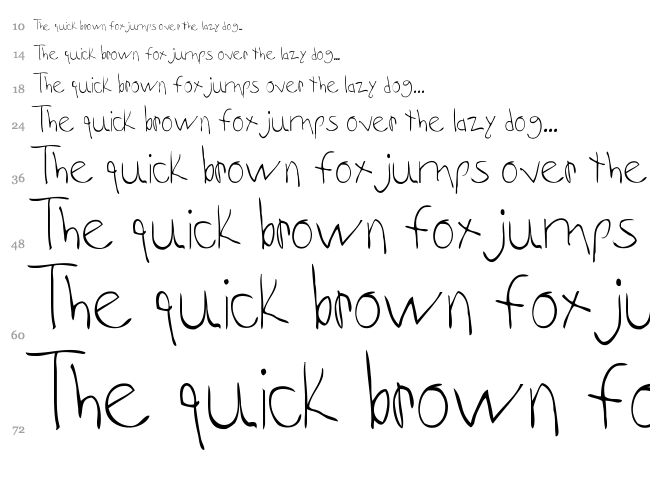 10 The quick brown fox jumps over the lazy dog...
14 The quick brown fox jumps over the lazy dog...
18 The quick brown fox jumps over the lazy dog...
24 The quick brown fox jumps over the lazy dog...
36 The quick brown fox jumps over the
48 The quick brown fox jumps
60 The quick brown fox ju
72 The quick brown fo